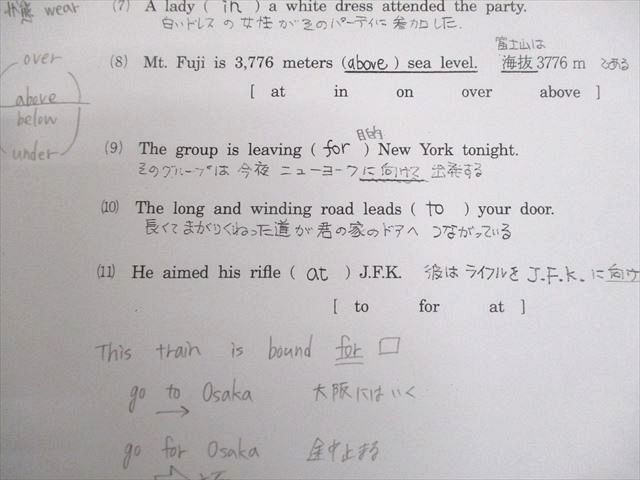 wear
(7) A lady ( in ) a white dress attended the party.
白いドレスの女性がそのパーティに参加した.
over
above
below
under
富士山は
(8) Mt. Fuji is 3,776 meters (above) sea level. 海抜3776 m である
[ at in on over above ]
目的
(9) The group is leaving ( for ) New York tonight.
そのグループは今夜ニューヨークに向けて出発する
(10) The long and winding road leads ( to ) your door.
長くてまがりくねった道が君の家のドアへつながっている
(11) He aimed his rifle ( at ) J.F.K. 彼はライフルをJ.F.K.に向け
[ to for at ]
This train is bound for □
go to Osaka 大阪にはいく
go for Osaka 途中止まる